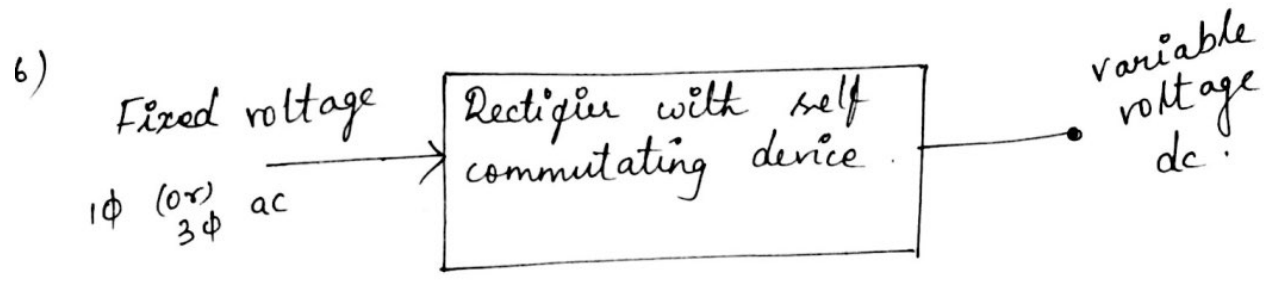 6)
Fixed voltage
1ϕ (or) 3ϕ ac
Rectifier with self
commutating device.
variable
voltage
dc.